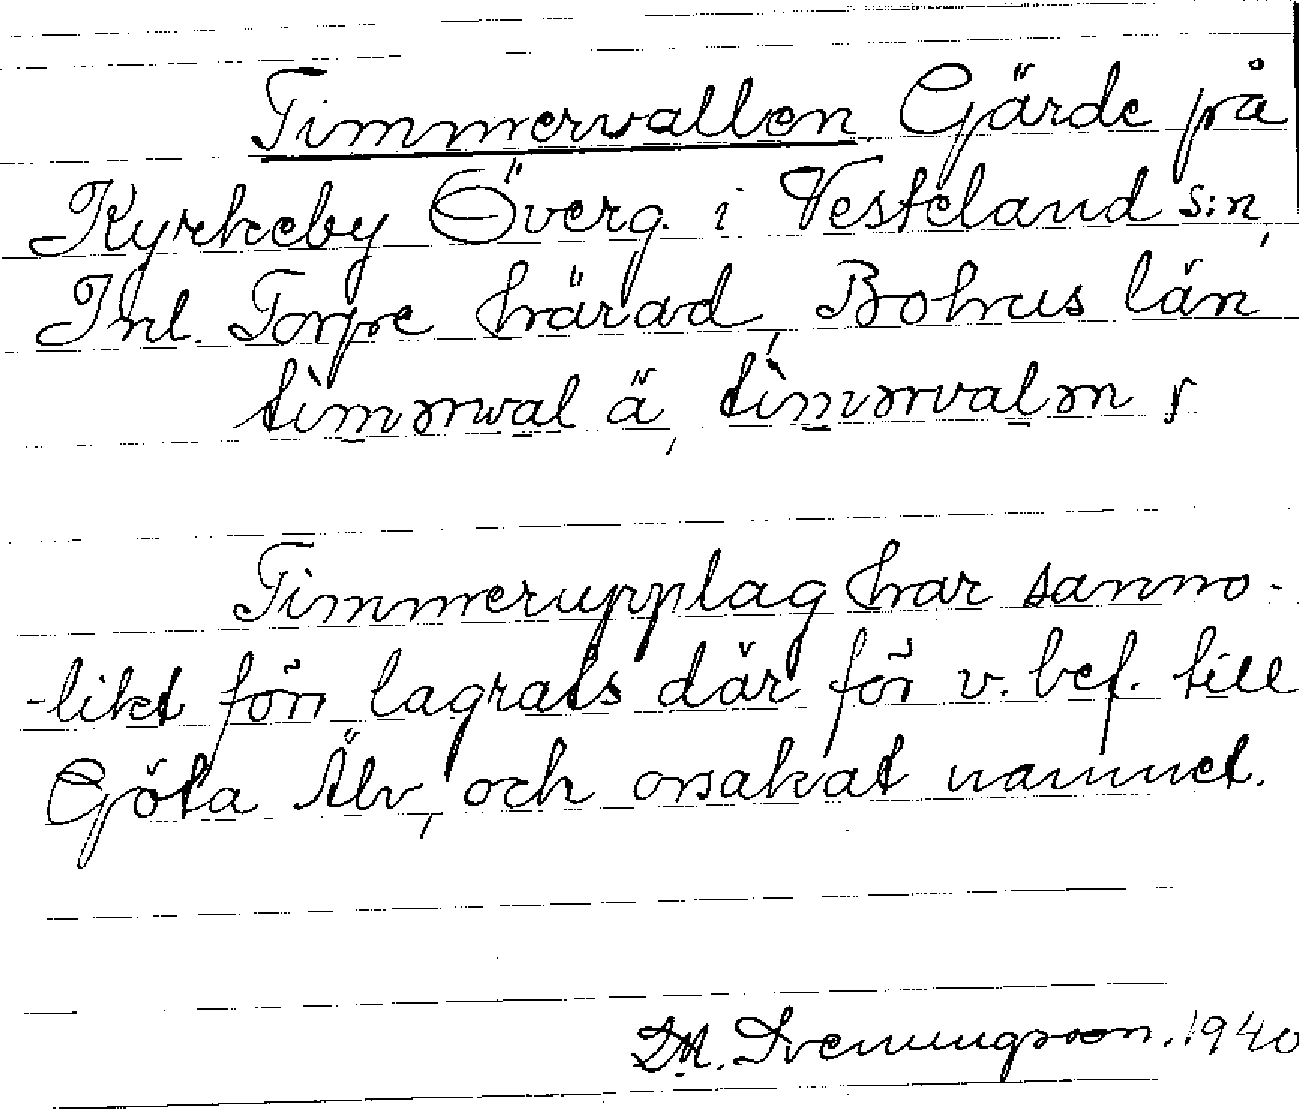 Timmervallen Gärde på
Kyrkeby Överg. i Vesteland s:n,
Inl. Torpe härad, Bohus län
Timmerupplag har sanno-
-likt förr lagrats där för v. bef. till
Göta Älv, och orsakat namnet.
M. Svenungsson. 1940